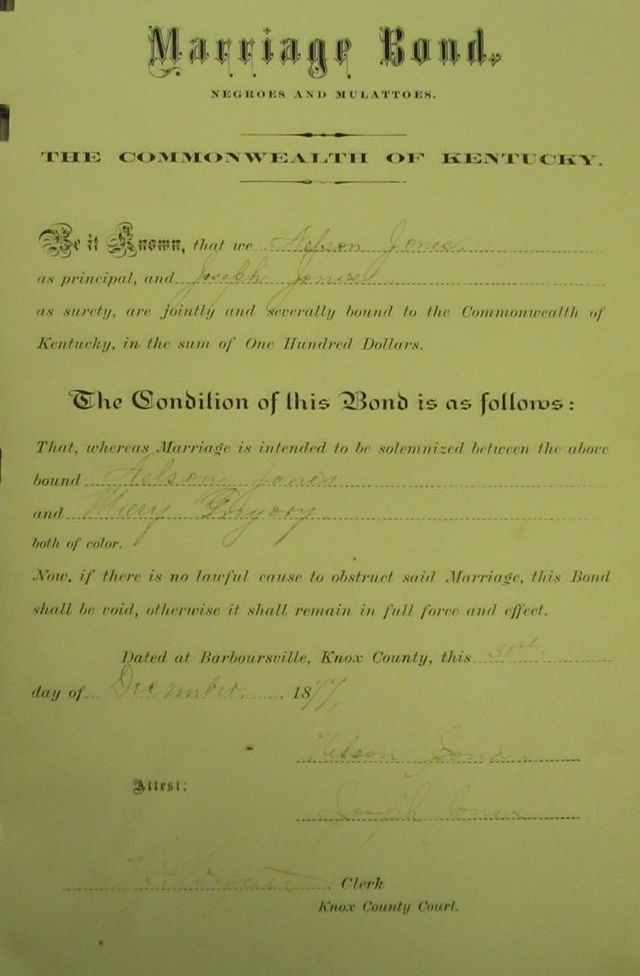 Marriage Bond.
NEGROES AND MULATTOES.
THE COMMONWEALTH OF KENTUCKY.
Be it Known, that we Nelson Jones
as principal, and Joseph Jones
as surety, are jointly and severally bound to the Commonwealth of
Kentucky, in the sum of One Hundred Dollars.
The Condition of this Bond is as follows:
That, whereas Marriage is intended to be solemnized between the above
bound Nelson Jones
and Mary
both of color.
Now, if there is no lawful cause to obstruct said Marriage, this Bond
shall be void, otherwise it shall remain in full force and effect.
Dated at Barboursville, Knox County, this 31st
day of December, 1877,
Nelson
Attest:
Joseph Jones
Clerk
Knox County Court.